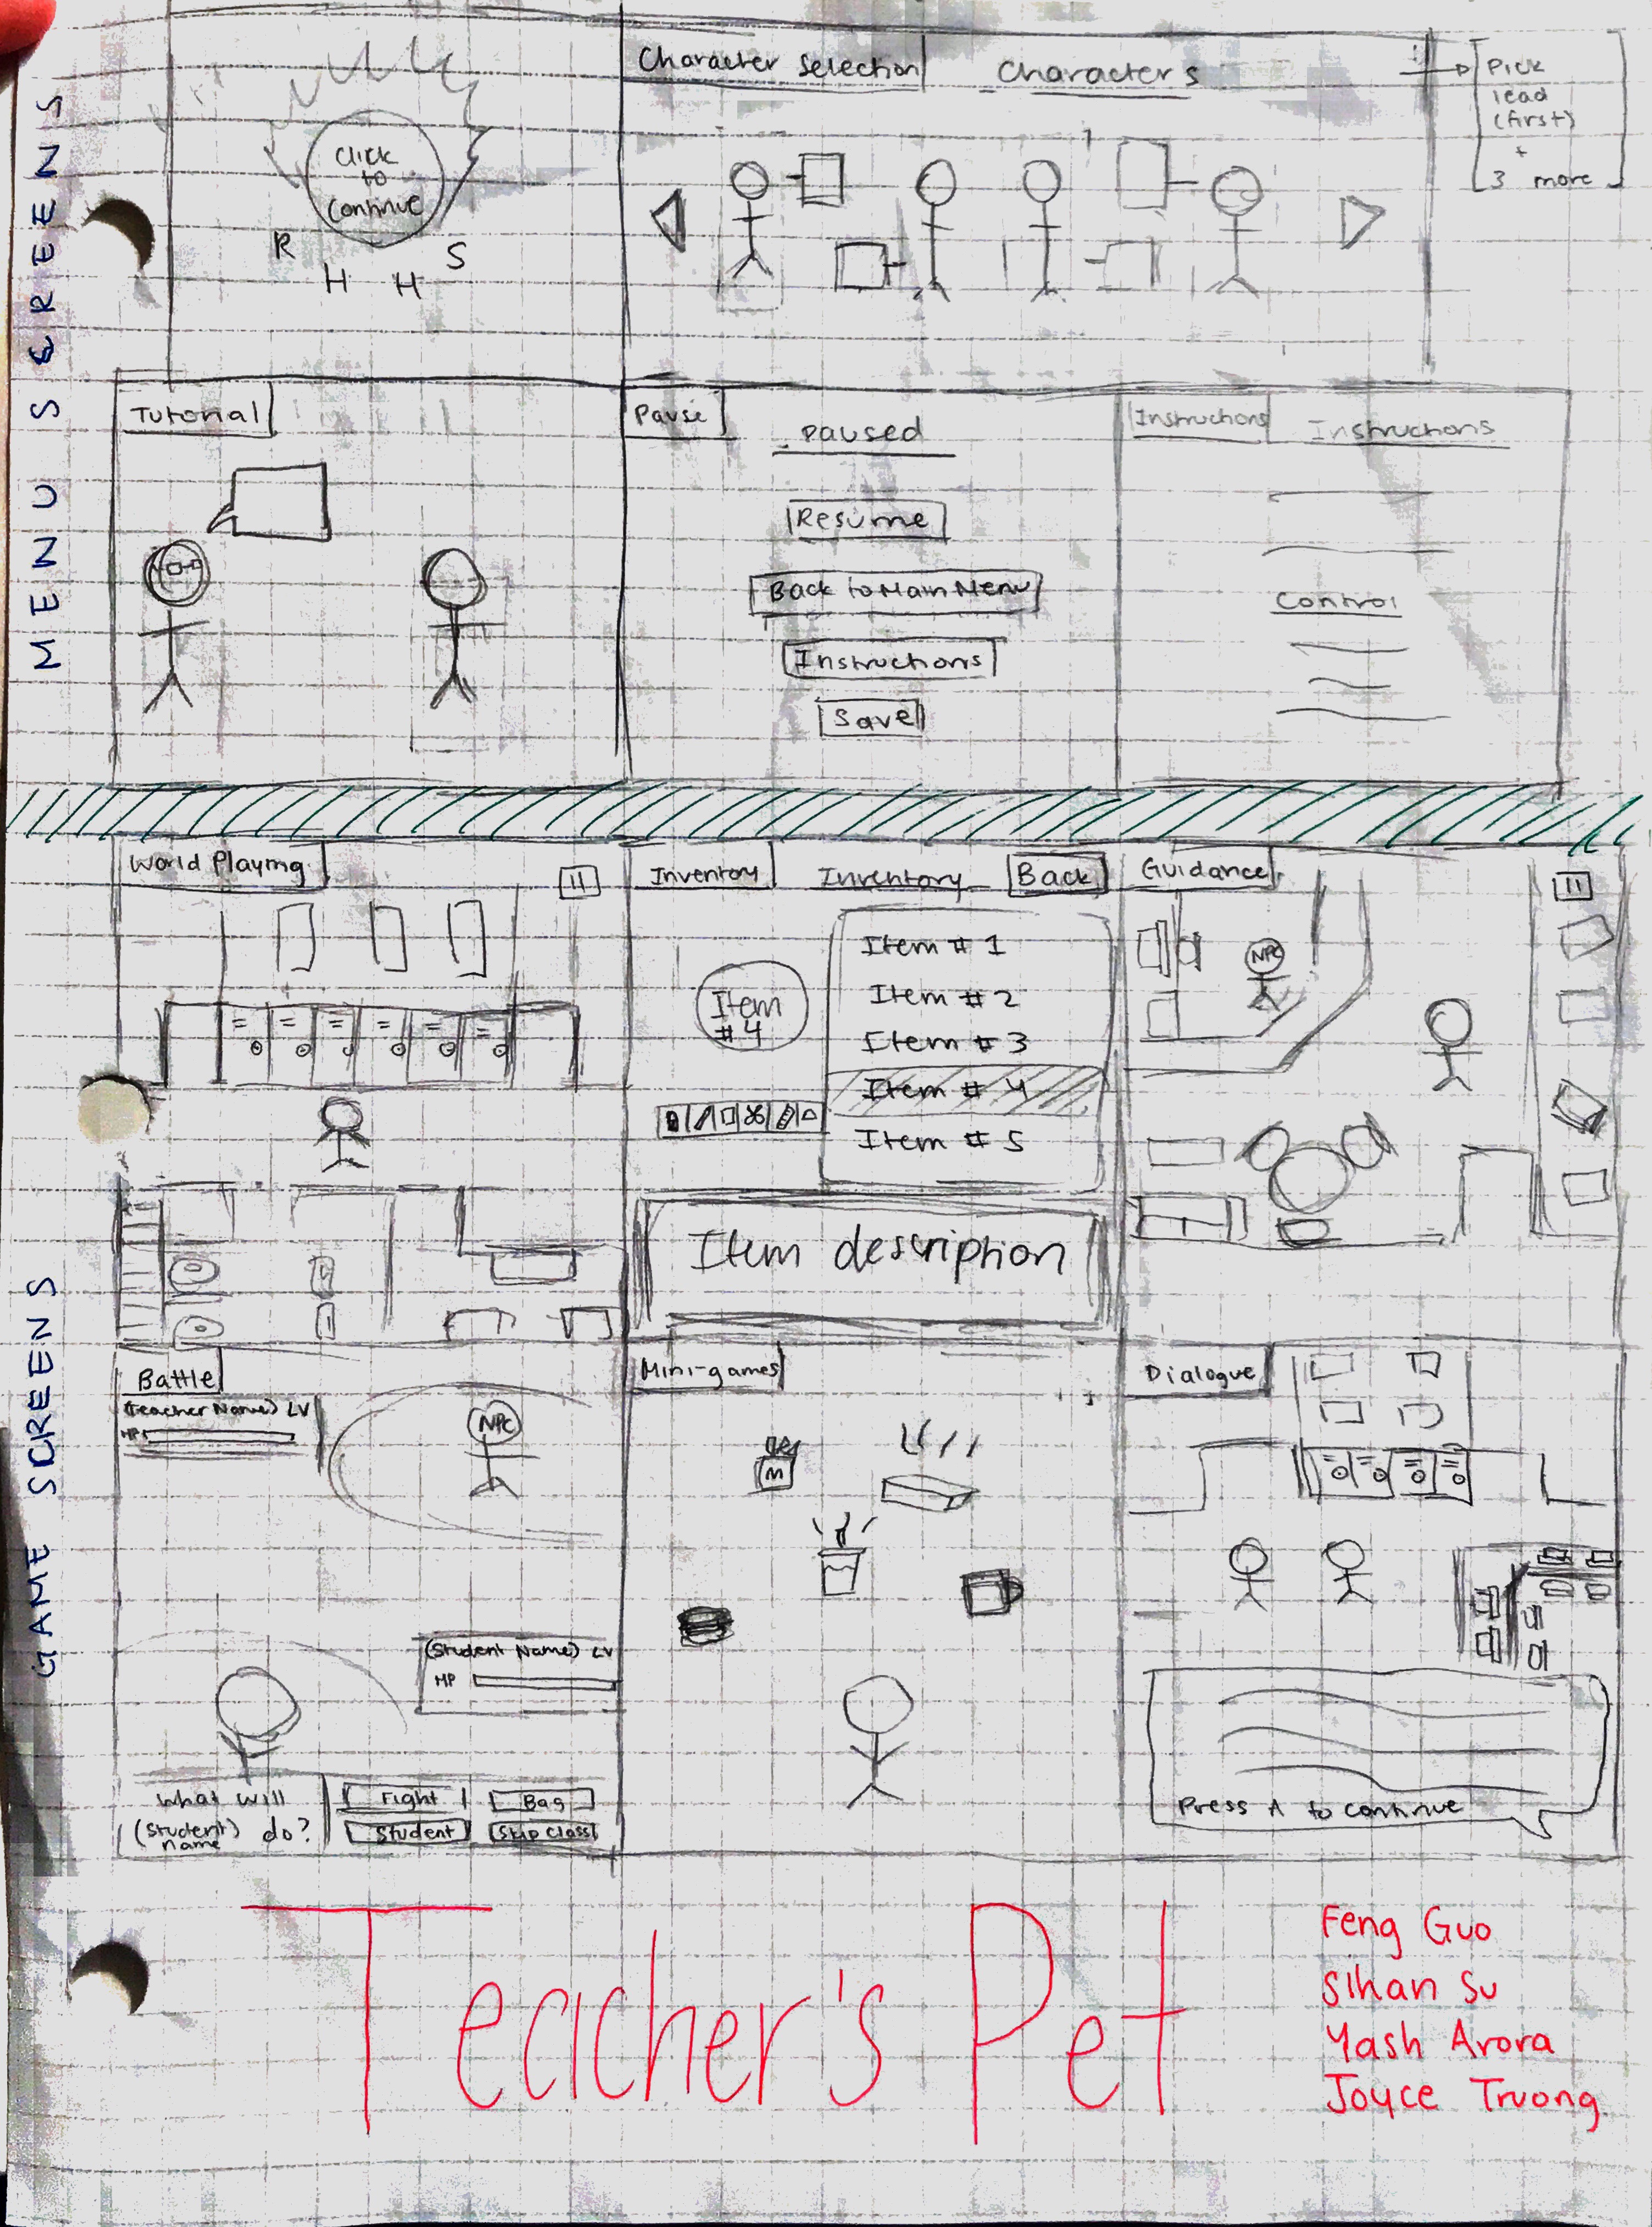 MENU SCREENS
Click
to
Continue
R H H S
Character Selection
Characters
Pick
lead
(first)
+
3 more
Tutorial
Pause
Paused
Resume
Back to Main Menu
Instructions
Save
Instructions
Instructions
Control
GAME SCREENS
World Playing
II
Inventory
Inventory
Back
Item
#4
Item # 1
Item # 2
Item # 3
Item # 4
Item # 5
Item description
Guidance
II
NPC
Battle
(Teacher Name) LV
HP
NPC
(Student Name) LV
HP
What will
(Student) do?
name
Fight
Bag
Student
Skip Class
Mini-games
M
Dialogue
Press A to continue
Teacher's Pet
Feng Guo
Sihan Su
Yash Arora
Joyce Truong